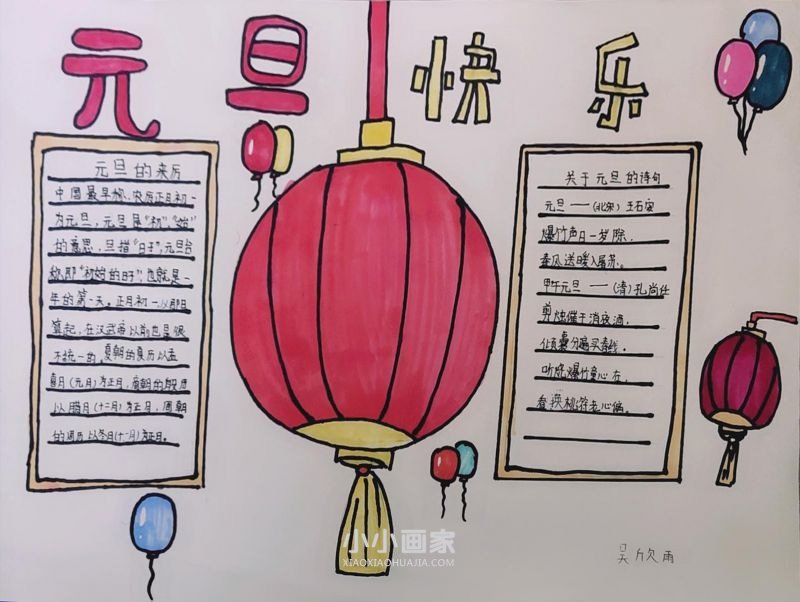 元旦快乐
元旦的来历
中国最早称农历正月初一
为元旦，元旦是“初”“始”
的意思，旦指“日子”，元旦合
称即“初始的日子”，也就是一
年的第一天。正月初一从即日
算起，在汉武帝以前也是很
不统一的。夏朝的夏历以孟
春月（元月）为正月，商朝的殷历
以腊月（十二月）为正月，周朝
的周历以冬月（十一月）为正月。
关于元旦的诗句
元旦——（北宋）王石安
爆竹声日一岁除，
春风送暖入屠苏。
甲午元旦——（清）孔尚任
剪烛催干消夜酒，
倾囊分遍买春钱。
听烧爆竹童心在，
看换桃符老心偏。
小小画家
XIAOXIAOHUAJIA.COM
吴欣雨